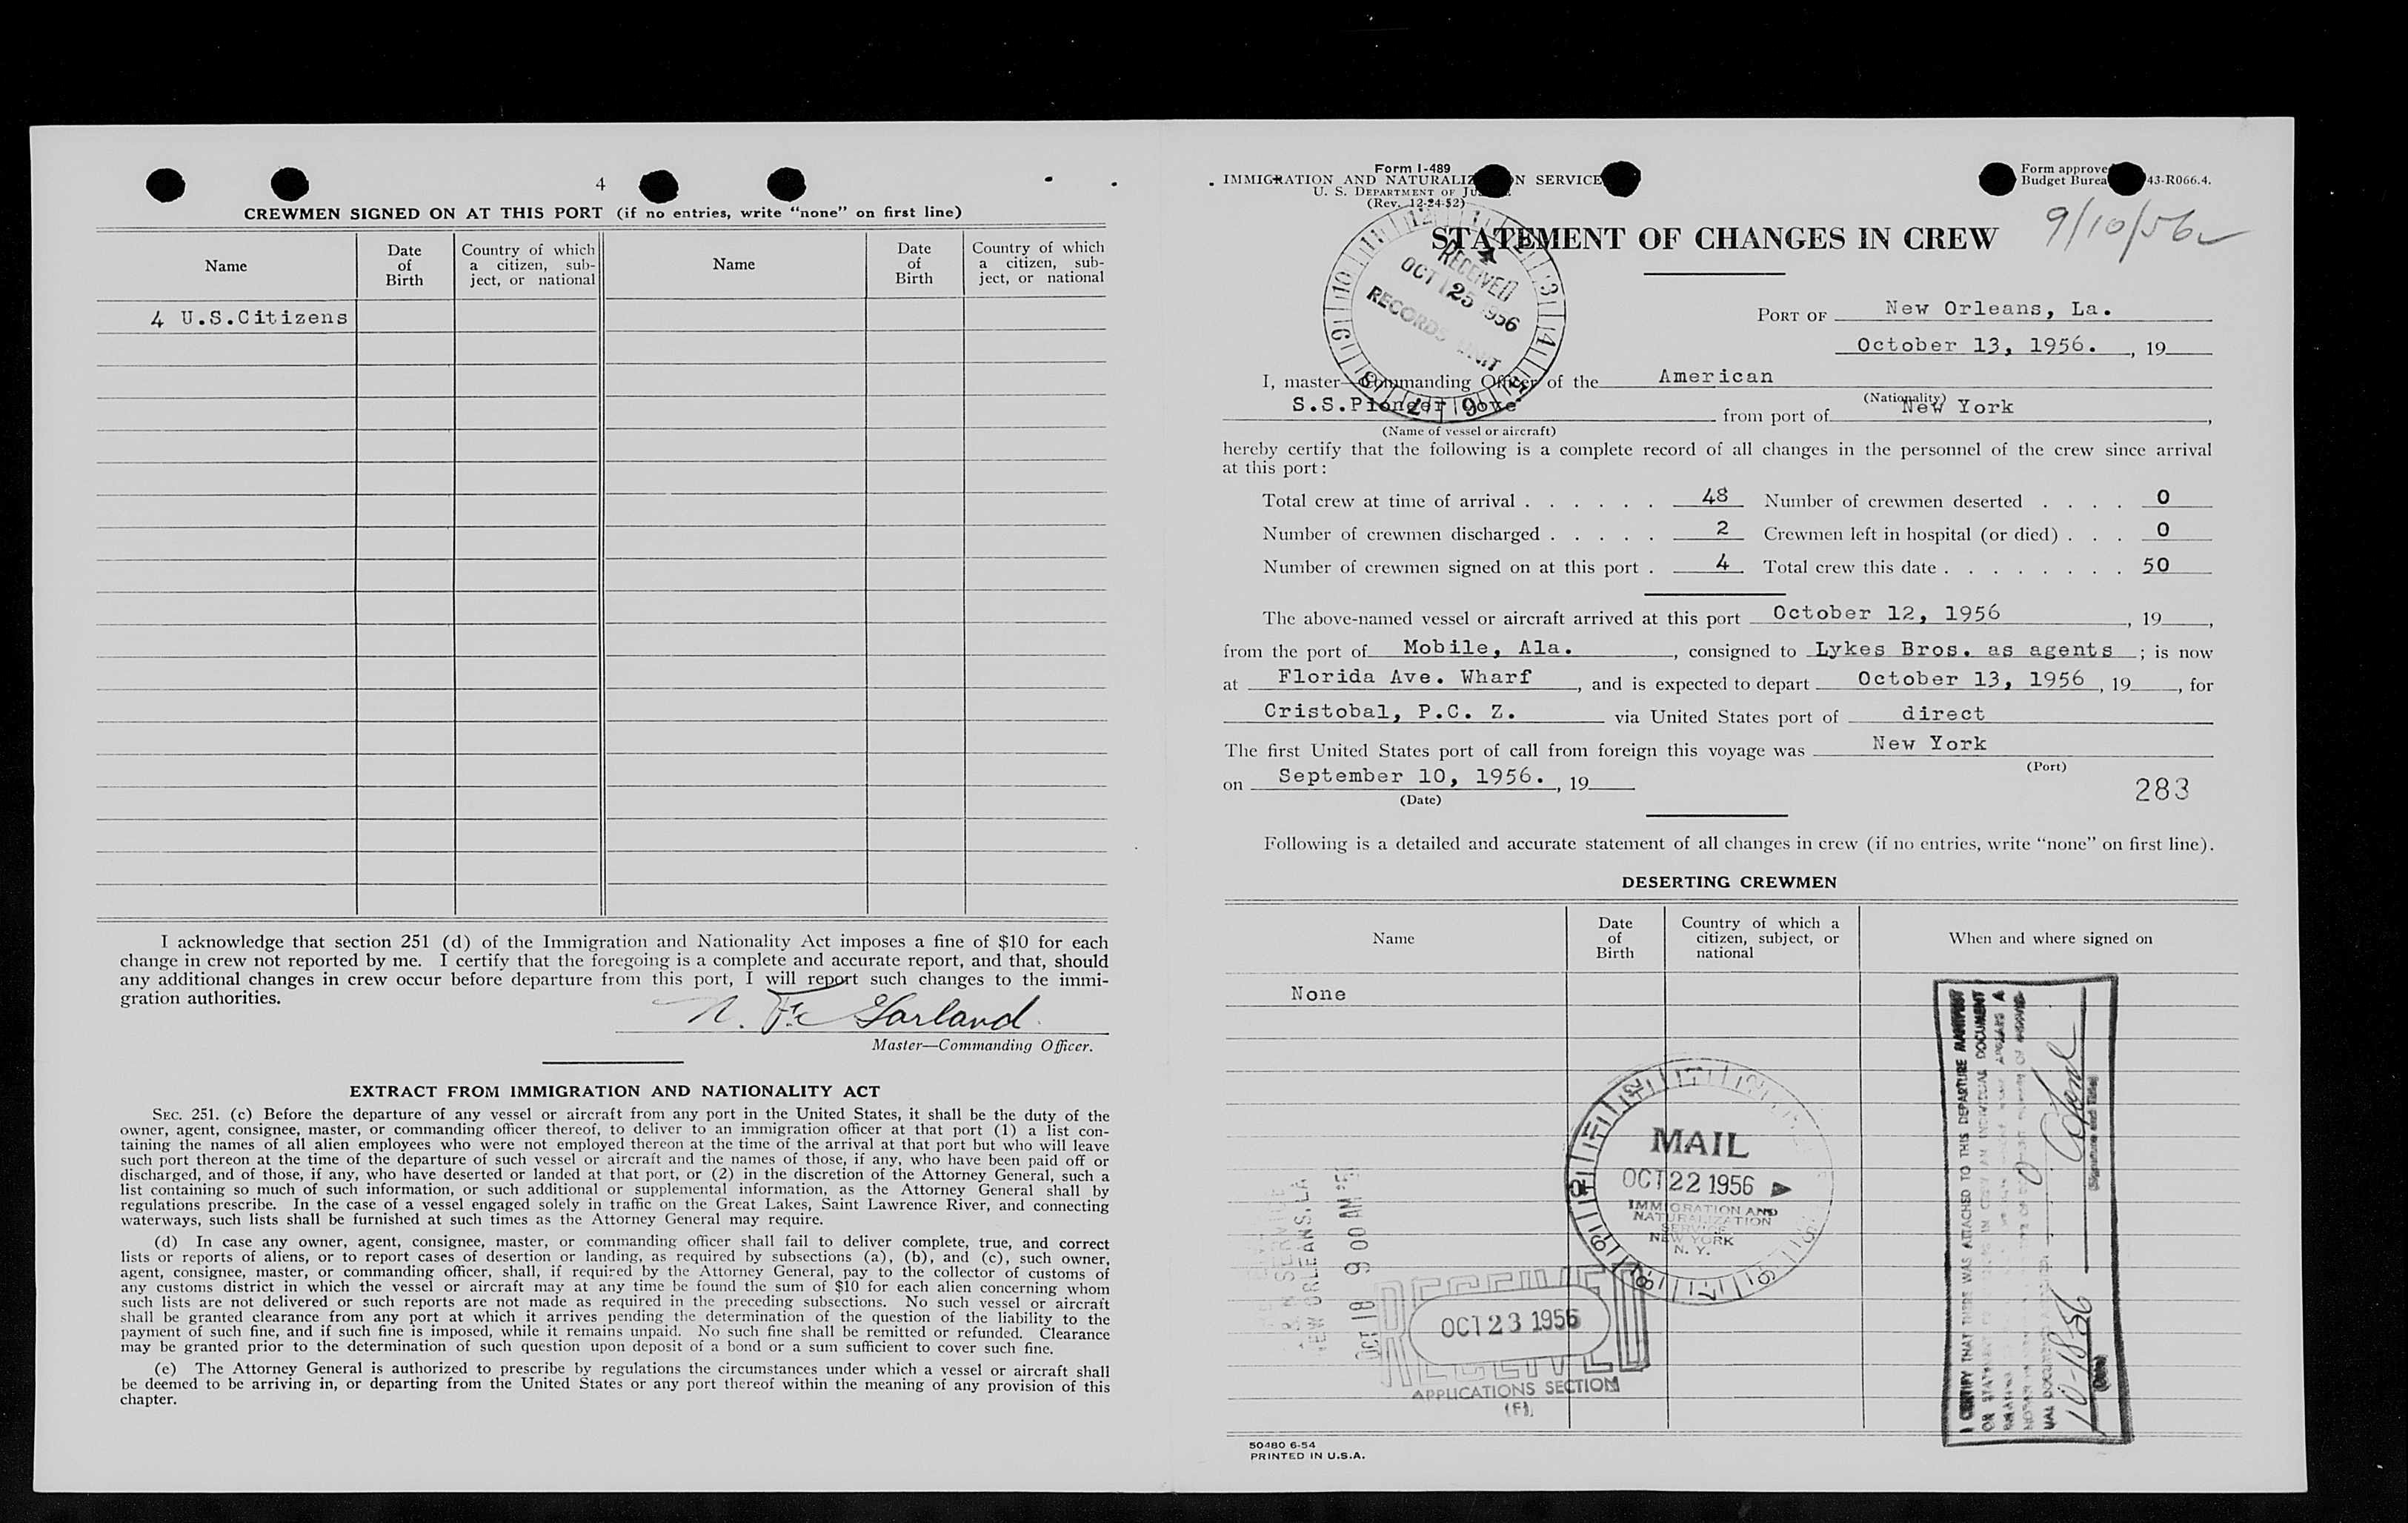 4
CREWMEN SIGNED ON AT THIS PORT (if no entries, write “none” on first line)
Name
Date of Birth
Country of which a citizen, subject, or national
Name
Date of Birth
Country of which a citizen, subject, or national
4 U.S.Citizens
I acknowledge that section 251 (d) of the Immigration and Nationality Act imposes a fine of $10 for each
change in crew not reported by me. I certify that the foregoing is a complete and accurate report, and that, should
any additional changes in crew occur before departure from this port, I will report such changes to the immi-
gration authorities.
Garland
Master—Commanding Officer.
EXTRACT FROM IMMIGRATION AND NATIONALITY ACT
SEC. 251. (c) Before the departure of any vessel or aircraft from any port in the United States, it shall be the duty of the
owner, agent, consignee, master, or commanding officer thereof, to deliver to an immigration officer at that port (1) a list con-
taining the names of all alien employees who were not employed thereon at the time of the arrival at that port but who will leave
such port thereon at the time of the departure of such vessel or aircraft and the names of those, if any, who have been paid off or
discharged, and of those, if any, who have deserted or landed at that port, or (2) in the discretion of the Attorney General, such a
list containing so much of such information, or such additional or supplemental information, as the Attorney General shall by
regulations prescribe. In the case of a vessel engaged solely in traffic on the Great Lakes, Saint Lawrence River, and connecting
waterways, such lists shall be furnished at such times as the Attorney General may require.
(d) In case any owner, agent, consignee, master, or commanding officer shall fail to deliver complete, true, and correct
lists or reports of aliens, or to report cases of desertion or landing, as required by subsections (a), (b), and (c), such owner,
agent, consignee, master, or commanding officer, shall, if required by the Attorney General, pay to the collector of customs of
any customs district in which the vessel or aircraft may at any time be found the sum of $10 for each alien concerning whom
such lists are not delivered or such reports are not made as required in the preceding subsections. No such vessel or aircraft
shall be granted clearance from any port at which it arrives pending the determination of the question of the liability to the
payment of such fine, and if such fine is imposed, while it remains unpaid. No such fine shall be remitted or refunded. Clearance
may be granted prior to the determination of such question upon deposit of a bond or a sum sufficient to cover such fine.
(e) The Attorney General is authorized to prescribe by regulations the circumstances under which a vessel or aircraft shall
be deemed to be arriving in, or departing from the United States or any port thereof within the meaning of any provision of this
chapter.
Form I-489
IMMIGRATION AND SERVICE
U. S. DEPARTMENT OF
(Rev. 12-24-52)
Form
Budget 43-R066.4.
9/10/56
STATEMENT OF CHANGES IN CREW
RECEIVED
OCT 25 1956
RECORDS UNIT
PORT OF New Orleans, La.
October 13, 1956. , 19
I, master—Commanding Officer of the American
(Nationality)
S.S.Pioneer Cove from port of New York ,
(Name of vessel or aircraft)
hereby certify that the following is a complete record of all changes in the personnel of the crew since arrival
at this port:
Total crew at time of arrival . . . . . . 48 Number of crewmen deserted . . . . 0
Number of crewmen discharged . . . . . 2 Crewmen left in hospital (or died) . . . 0
Number of crewmen signed on at this port . 4 Total crew this date . . . . . . . . 50
The above-named vessel or aircraft arrived at this port October 12, 1956 , 19 ,
from the port of Mobile, Ala. , consigned to Lykes Bros. as agents ; is now
at Florida Ave. Wharf , and is expected to depart October 13, 1956 , 19 , for
Cristobal, P.C. Z. via United States port of direct
The first United States port of call from foreign this voyage was New York
(Port)
on September 10, 1956. , 19
(Date)
283
Following is a detailed and accurate statement of all changes in crew (if no entries, write “none” on first line).
DESERTING CREWMEN
Name
Date of Birth
Country of which a citizen, subject, or national
When and where signed on
None
MAIL
OCT 22 1956
IMMIGRATION AND
NATURALIZATION
SERVICE
NEW YORK
N. Y.
NEW ORLEANS, LA
OCT 18 9 00 AM
RECEIVED
OCT 23 1956
APPLICATIONS SECTION
(F)
I CERTIFY THAT THERE WAS ATTACHED TO THIS DEPARTURE MANIFEST
0
Signature and Title
10-18-56
(Date)
50480 6-54
PRINTED IN U.S.A.